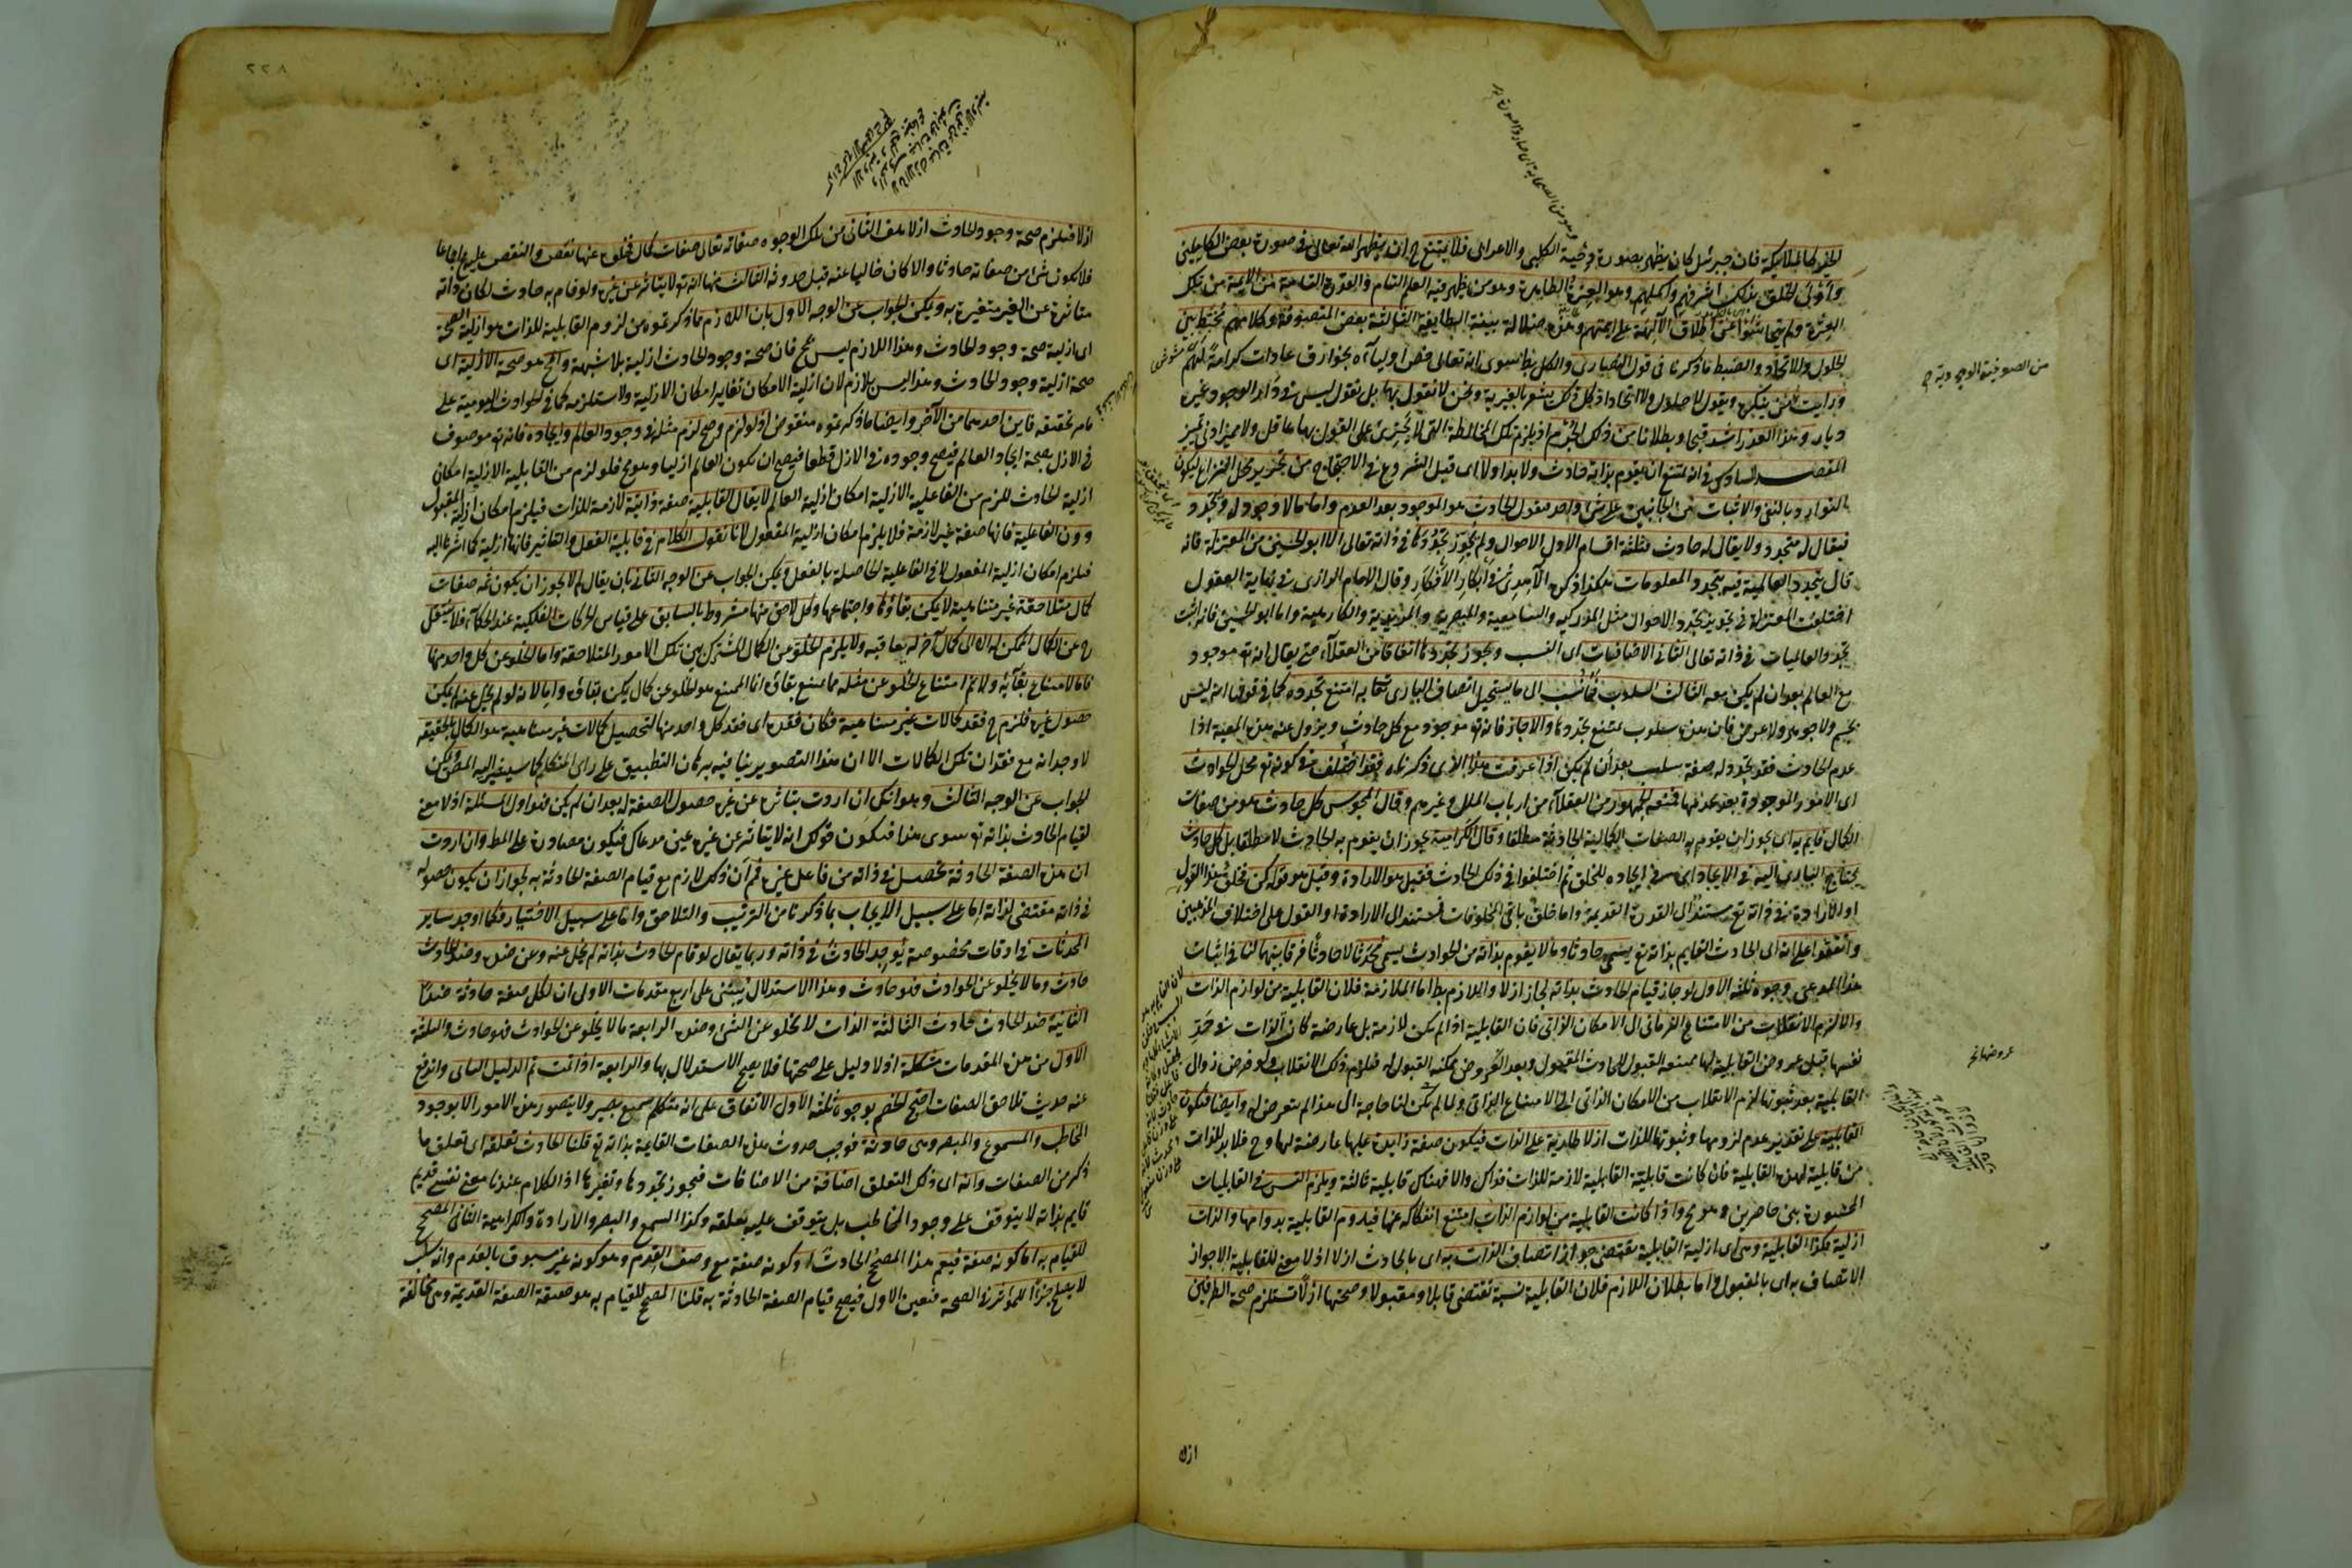 الخير كالملائكة فان جبرئيل كان يظهر بصورة دحية الكلبي والاعرابي فلا يمتنع ح ان يظهر الله تعالى في صورة بعض الكاملين
واولى الخلق بذلك اشرفهم واكملهم وهو العترة الطاهرة وهو من يظهر فيه العلم التام والقدرة التامة من الائمة من تلك
العترة ولم يتحاشوا عن اطلاق الآلهة على ائمتهم وهذه ضلالة بينة الطايفة الثالثة بعض المتصوفة وكلامهم مخبط بين
الحلول والاتحاد والضبط ما ذكرنا في قول النصارى والكل بط سوى انه تعالى خص اولياءه بخوارق عادات كرامة لهم
ورايت من ينكره ويقول لا حلول ولا اتحاد اذ كل ذلك يشعر بالغيرية ونحن لا نقول بها بل نقول ليس في دار الوجود غيره
ديار وهذا العذر اشد قبحا وبطلانا من ذلك الجرم اذ يلزم تلك المخالطة التي لا يجترئ على القول بها عاقل ولا مميز ادنى تمييز
المقصد السادس في انه يمتنع ان يقوم بذاته حادث ولا بد اولا اى قبل الشروع في الاحتجاج من تحرير محل النزاع ليكون
التوارد بالنفي والاثبات من الجانبين على شئ واحد فنقول الحادث هو الموجود بعد العدم واما ما لا وجود له وتجدد
فيقال له متجدد ولا يقال له حادث فثلثة اقسام الاول الاحوال ولم يجوز تجددها في ذاته تعالى الا ابو الحسين من المعتزلة فانه
قال يتجدد العالمية فيه بتجدد المعلومات هكذا ذكره الآمدى في ابكار الافكار وقال الامام الرازى في نهاية العقول
اختلف المعتزلة في تجويز تجدد الاحوال مثل المدركية والسامعية والمبصرية والمريدية والكارهية واما ابو الحسين فانه اثبت
تجدد العالميات في ذاته تعالى الثاني الاضافيات اى النسب ويجوز تجددها اتفاقا من العقلاء حتى يقال انه تع موجود
مع العالم بعد ان لم يكن معه الثالث السلوب فما نسب الى ما يستحيل اتصاف البارى تعالى به امتنع تجدده كما في قولنا انه ليس
بجسم ولا جوهر ولا عرض فان هذه سلوب يمتنع تجددها والا جاز فانه تع موجود مع كل حادث ويزول عنه هذه المعية اذا
عدم الحادث فقد تجدد له صفة سلب بعد ان لم يكن اذا عرفت هذا الذى ذكرناه فقد اختلف في كونه تع محل الحوادث
اى الامور الموجودة بعد عدمها فمنعه الجمهور من العقلاء من ارباب الملل وغيرهم وقال المجوس كل حادث هو من صفات
الكمال قايم به اى يجوز ان يقوم به الصفات الكمالية الحادثة مطلقا وقال الكرامية يجوز ان يقوم به الحادث لا مطلقا بل كل حادث
يحتاج البارى اليه في الايجاد اى في ايجاده للخلق ثم اختلفوا في ذلك الحادث فقيل هو الارادة وقيل هو قوله كن فخلق هذا القول
او الارادة في ذاته تع مستند الى القدرة القديمة واما خلق باقي المخلوقات فمستند الى الارادة او القول على اختلاف المذهبين
واتفقوا على انه اى الحادث القايم بذاته تع يسمى حادثا وما لا يقوم بذاته من الحوادث يسمى محدثا لا حادثا فرقا بينهما لنا في اثبات
هذا المدعى وجوه ثلثة الاول لو جاز قيام الحادث بذاته لجاز ازلا واللازم بط اما الملازمة فلان القابلية من لوازم الذات
والا لزم الانقلاب من الامتناع الذاتي الى الامكان الذاتي فان القابلية اذا لم تكن لازمة بل عارضة كان الذات في حد
نفسها قبل عروض القابلية لها ممتنعة القبول للحادث المقبول وبعد العروض ممكنة القبول له فيلزم ذلك الانقلاب ولو فرض زوال
القابلية بعد ثبوتها لزم الانقلاب من الامكان الذاتي الى الامتناع الذاتي ولما لم تكن لنا حاجة الى هذا لم يتعرض له وايضا فتكون
القابلية على تقدير عدم لزومها وثبوتها للذات ازلا طارية على الذات فيكون صفة زايدة عليها عارضة لها وح فلا بد للذات
من قابلية لهذه القابلية فان كانت قابلية القابلية لازمة للذات فذاك والا فهناك قابلية ثالثة ويلزم التس في القابليات
المحصورة بين حاصرين وهو مح واذا كانت القابلية من لوازم الذات امتنع انفكاكه عنها فيدوم القابلية بدوامها والذات
ازلية فكذا القابلية وهى اى ازلية القابلية تقتضى جواز اتصاف الذات به اى بالحادث ازلا اذ لا معنى للقابلية الا جواز
الاتصاف به اى بالمقبول واما بطلان اللازم فلان القابلية نسبة تقتضى قابلا ومقبولا وصحتها ازلا تستلزم صحة الطرفين
ازلا
من الصوفية الوجودية ح
عروضها نخ
٢٢٨
ازلا فيلزم صحة وجود الحادث ازلا هف الثاني من تلك الوجوه صفاته تعالى صفات كمال فخلوه عنها نقص والنقص عليه مح اجماعا
فلا يكون شئ من صفاته حادثا والا كان خاليا عنه قبل حدوثه الثالث منها انه تع لا يتاثر عن غيره ولو قام به حادث لكان ذاته
متاثرة عن الغير متغيرة به ويمكن الجواب عن الوجه الاول بان اللازم مما ذكرتموه من لزوم القابلية للذات هو ازلية الصحة
اى ازلية صحة وجود الحادث وهذا اللازم ليس بمح فان صحة وجود الحادث ازلية بلا شبهة والمح هو صحة الازلية اى
صحة ازلية وجود الحادث وهذا ليس بلازم لان ازلية الامكان تغاير امكان الازلية ولا تستلزمه كما في الحوادث اليومية على
ما مر تحقيقه فاين احدهما من الآخر وايضا ما ذكرتموه منقوض اذ لو لزم وصح لزم مثله في وجود العالم وايجاده فانه تع موصوف
في الازل بصحة ايجاد العالم فيصح وجوده في الازل قطعا فيصح ان يكون العالم ازليا وهو مح فلو لزم من القابلية الازلية امكان
ازلية الحادث للزم من الفاعلية الازلية امكان ازلية العالم لا يقال القابلية صفة ذاتية لازمة للذات فيلزم امكان ازلية المقبول
دون الفاعلية فانها صفة غير لازمة فلا يلزم امكان ازلية المفعول لانا نقول الكلام في قابلية الفعل والتاثير فانها ازلية كما اشرنا اليه
فيلزم امكان ازلية المفعول لا في الفاعلية الحاصلة بالفعل ويمكن الجواب عن الوجه الثاني بان يقال لم لا يجوز ان يكون ثمه صفات
كمال متلاحقة غير متناهية لا يمكن بقاؤها واجتماعها وكل لاحق منها مشروط بالسابق على قياس الحركات الفلكية عند الحكماء فلا ينتقل
ح عن الكمال الممكن له الا الى كمال آخر له يعاقبه ولا يلزم الخلو من الكمال المشترك بين تلك الامور المتلاحقة واما الخلو عن كل واحد منها
فاما لامتناع بقائه ولا نم امتناع الخلو عن مثله مما يمتنع بقاؤه انما الممتنع هو الخلو عن كمال يمكن بقاؤه واما لانه لو لم يخل عنه لم يمكن
حصول غيره فلزم ح فقد كمالات غير متناهية فكان فقده اى فقد كل واحد منها لتحصيل كمالات غير متناهية هو الكمال بالحقيقة
لا وجدانه مع فقدان تلك الكمالات الا ان هذا التصوير ينافيه برهان التطبيق على راى المتكلم كما سيشير اليه المصنف ويمكن
الجواب عن الوجه الثالث وهو انك ان اردت بتاثره عن غيره حصول الصفة له بعد ان لم يكن فهو اول المسئلة اذ لا معنى
لقيام الحادث بذاته تع سوى هذا فيكون قولك انه لا يتاثر عن غيره عين مدعاك فيكون مصادرة على المط وان اردت
ان هذه الصفة الحادثة تحصل في ذاته من فاعل غيره فم ان ذلك لازم مع قيام الصفة الحادثة به لجواز ان يكون حصوله
في ذاته مقتضى لذاته اما على سبيل الايجاب بما ذكرنا من الترتيب والتلاحق واما على سبيل الاختيار فكما اوجد ساير
المحدثات في اوقات مخصوصة يوجد الحادث في ذاته وربما يقال لو قام الحادث بذاته لم يخل عنه وعن ضده وضد الحادث
حادث وما لا يخلو عن الحوادث فهو حادث وهذا الاستدلال يبتنى على اربع مقدمات الاولى ان لكل صفة حادثة ضدا
الثانية ضد الحادث حادث الثالثة الذات لا تخلو عن الشئ وضده الرابعة ما لا يخلو عن الحوادث فهو حادث والثلثة
الاول من هذه المقدمات مشكلة اذ لا دليل على صحتها فلا يصح الاستدلال بها والرابعة اذا تمت تم الدليل الثاني واندفع
عنه حديث تلاحق الصفات احتج الخصم بوجوه ثلثة الاول الاتفاق على انه متكلم سميع بصير ولا يتصور هذه الامور الا بوجود
المخاطب والمسموع والمبصر وهى حادثة فوجب حدوث هذه الصفات القايمة بذاته تع قلنا الحادث تعلقه اى تعلق ما
ذكر من الصفات وانه اى ذلك التعلق اضافة من الاضافات فيجوز تجددها وتغيرها اذ الكلام عندنا معنى نفسي قديم
قايم بذاته لا يتوقف على وجود المخاطب بل يتوقف عليه تعلقه وكذا السمع والبصر والارادة والكراهية الثاني المصحح
للقيام به اما كونه صفة فيعم هذا المصحح الحادث او كونه صفة مع وصف القدم وهو كونه غير مسبوق بالعدم وانه سلب
لا يصلح جزءا للمؤثر في الصحة فتعين الاول فيصح قيام الصفة الحادثة به قلنا المصحح للقيام به هو حقيقة الصفة القديمة وهى مخالفة